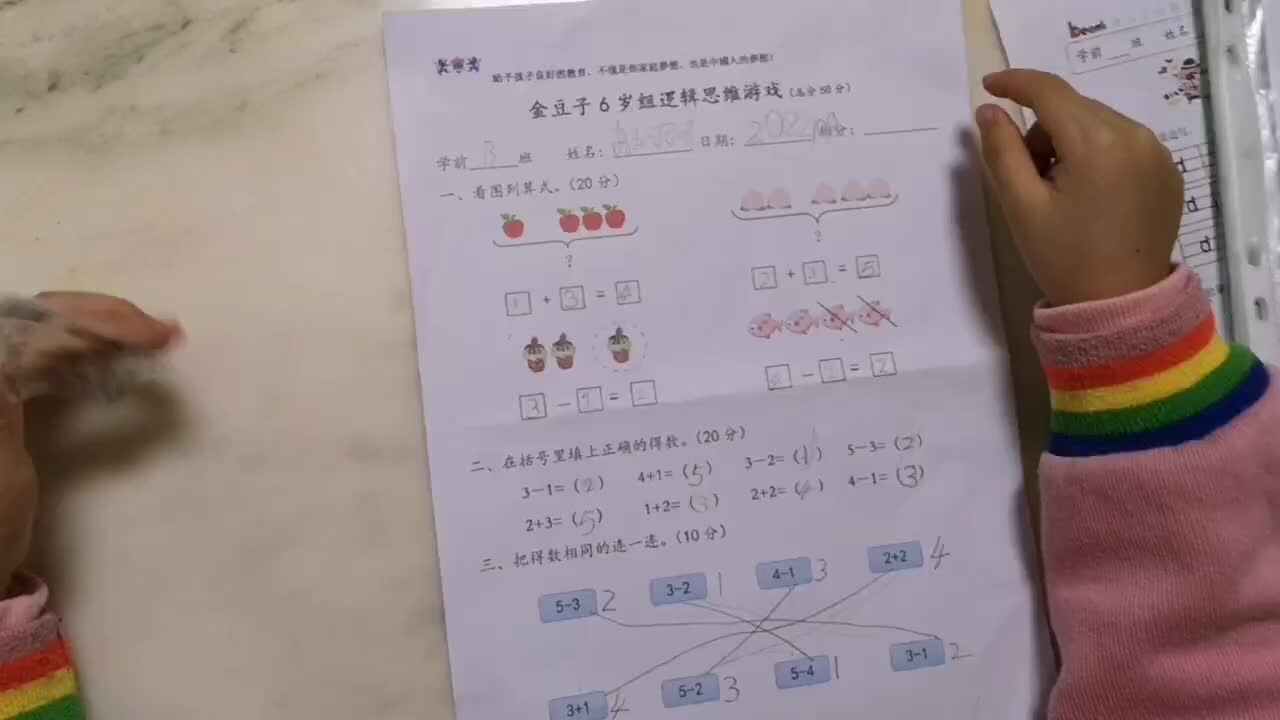 給予孩子良好的教育，不僅是你家庭夢想，也是中國人的夢想！
金豆子6岁组逻辑思维游戏（总分50分）
学前 B 班 姓名： 日期：2022 得分：
一、看图列算式。（20分）
?
?
1 + 3 = 4
2 + = 5
3 - 1 = 2
- = 2
二、在括号里填上正确的得数。（20分）
3-1=（2） 4+1=（5） 3-2=（1） 5-3=（2）
2+3=（5） 1+2=（3） 2+2=（4） 4-1=（3）
三、把得数相同的连一连。（10分）
5-3 2 3-2 1 4-1 3 2+2 4
3+1 4 5-2 3 5-4 1 3-1 2
学前 班 姓名
d
d